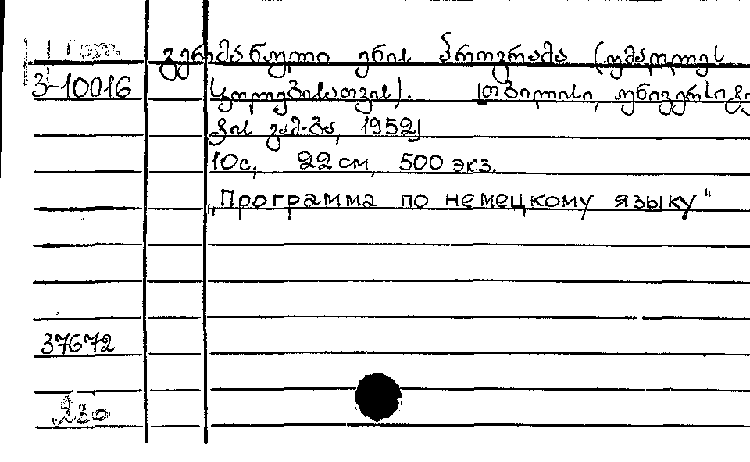 გერმანული ენის პროგრამა (უმაღლეს
3-10016 სკოლებისათვის). [თბილისი, უნივერსიტე
ტის გამ-ბა, 1952]
10с, 22 см, 500 экз.
„Программа по немецкому языку"
37672